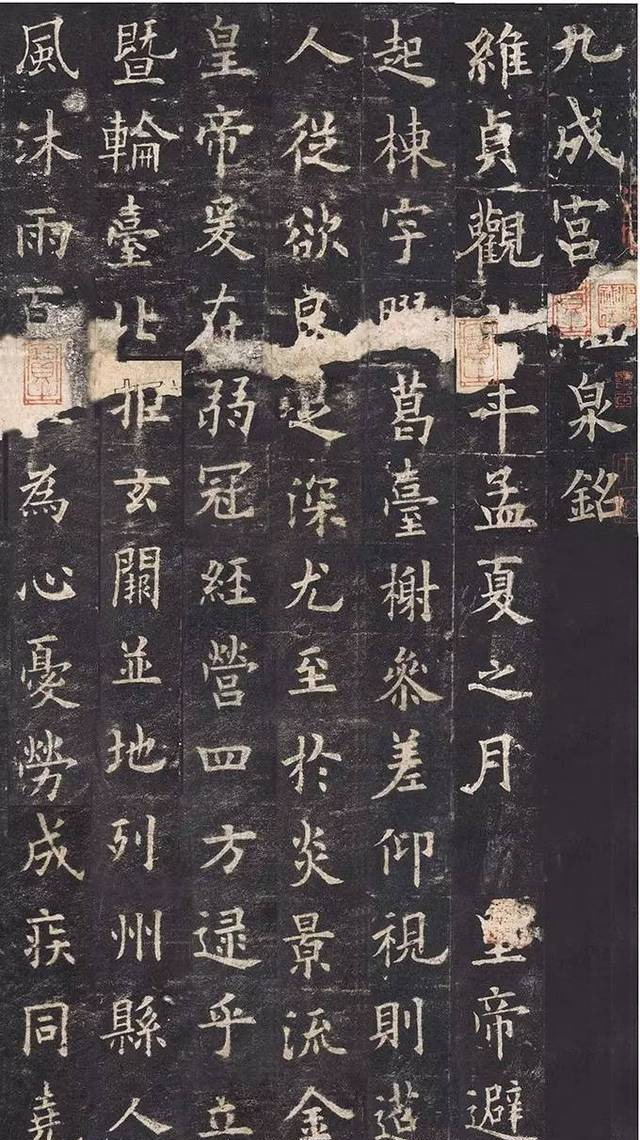 九成宮泉銘
維貞觀年孟夏之月 皇帝避
起棟宇葛臺榭叅差仰視則迢
人從欲良足深尤至於炎景流金
皇帝爰在弱冠經營四方逯乎立
暨輪臺北拒玄闕並地列州縣人
風沐雨百為心憂勞成疾同堯